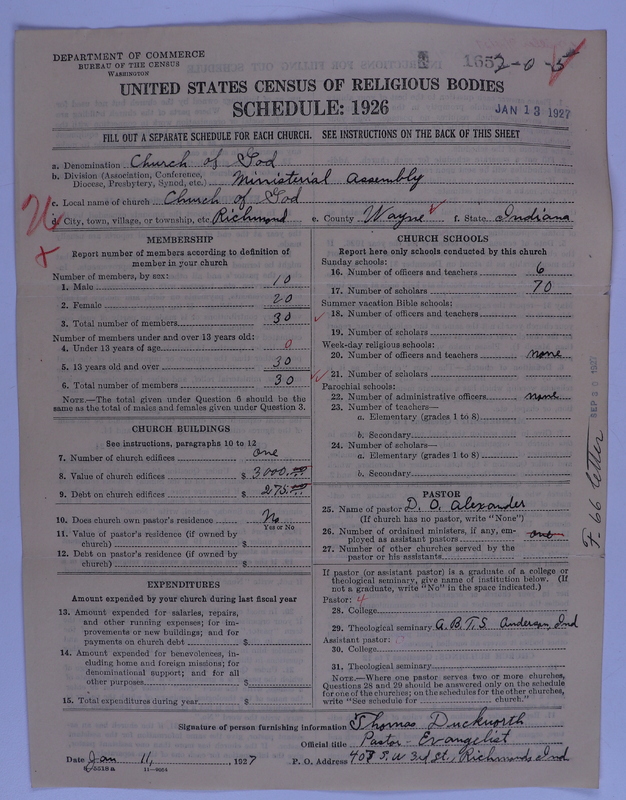 DEPARTMENT OF COMMERCE
BUREAU OF THE CENSUS
WASHINGTON
1652-0-5
UNITED STATES CENSUS OF RELIGIOUS BODIES
SCHEDULE: 1926
JAN 13 1927
FILL OUT A SEPARATE SCHEDULE FOR EACH CHURCH. SEE INSTRUCTIONS ON THE BACK OF THIS SHEET
a. Denomination Church of God
b. Division (Association, Conference, Diocese, Presbytery, Synod, etc.) Ministerial Assembly
c. Local name of church Church of God
d. City, town, village, or township, etc. Richmond e. County Wayne f. State Indiana
MEMBERSHIP
Report number of members according to definition of
member in your church
Number of members, by sex:
1. Male 10
2. Female 20
3. Total number of members 30
Number of members under and over 13 years old:
4. Under 13 years of age 0
5. 13 years old and over 30
6. Total number of members 30
NOTE.—The total given under Question 6 should be
same as the total of males and females given under Question 3.
CHURCH BUILDINGS
See instructions, paragraphs 10 to 12
7. Number of church edifices one
8. Value of church edifices $ 3000.00
9. Debt on church edifices $ 275.00
10. Does church own pastor's residence No
Yes or No
11. Value of pastor's residence (if owned by
church) $
12. Debt on pastor's residence (if owned by
church) $
EXPENDITURES
Amount expended by your church during last fiscal year
13. Amount expended for salaries, repairs,
and other running expenses; for im-
provements or new buildings; and for
payments on church debt $
14. Amount expended for benevolences, in-
cluding home and foreign missions; for
denominational support; and for all
other purposes $
15. Total expenditures during year $
CHURCH SCHOOLS
Report here only schools conducted by this church
Sunday schools:
16. Number of officers and teachers 6
17. Number of scholars 70
Summer vacation Bible schools:
18. Number of officers and teachers
19. Number of scholars
Week-day religious schools:
20. Number of officers and teachers none
21. Number of scholars
Parochial schools:
22. Number of administrative officers none
23. Number of teachers—
a. Elementary (grades 1 to 8)
b. Secondary
24. Number of scholars—
a. Elementary (grades 1 to 8)
b. Secondary
PASTOR
25. Name of pastor D. O. Alexander
(If church has no pastor, write "None")
26. Number of ordained ministers, if any, em-
ployed as assistant pastors one
27. Number of other churches served by the
pastor or his assistants
If pastor (or assistant pastor) is a graduate of a college or
theological seminary, give name of institution below. (If
not a graduate, write "No" in the space indicated.)
Pastor: 4
28. College
29. Theological seminary A.B.T.S. Anderson, Ind
Assistant pastor:
30. College
31. Theological seminary
NOTE.—Where one pastor serves two or more churches,
Questions 28 and 29 should be answered only on the schedule
for one of the churches; on the schedules for the other churches,
write "See schedule for church."
Signature of person furnishing information Thomas Duckworth
Official title Pastor-Evangelist
Date Jan 11, 1927 P. O. Address 407 S. W 3rd St., Richmond Ind
8-5518a 11-8054
SEP 30 1927
F. 66 letter